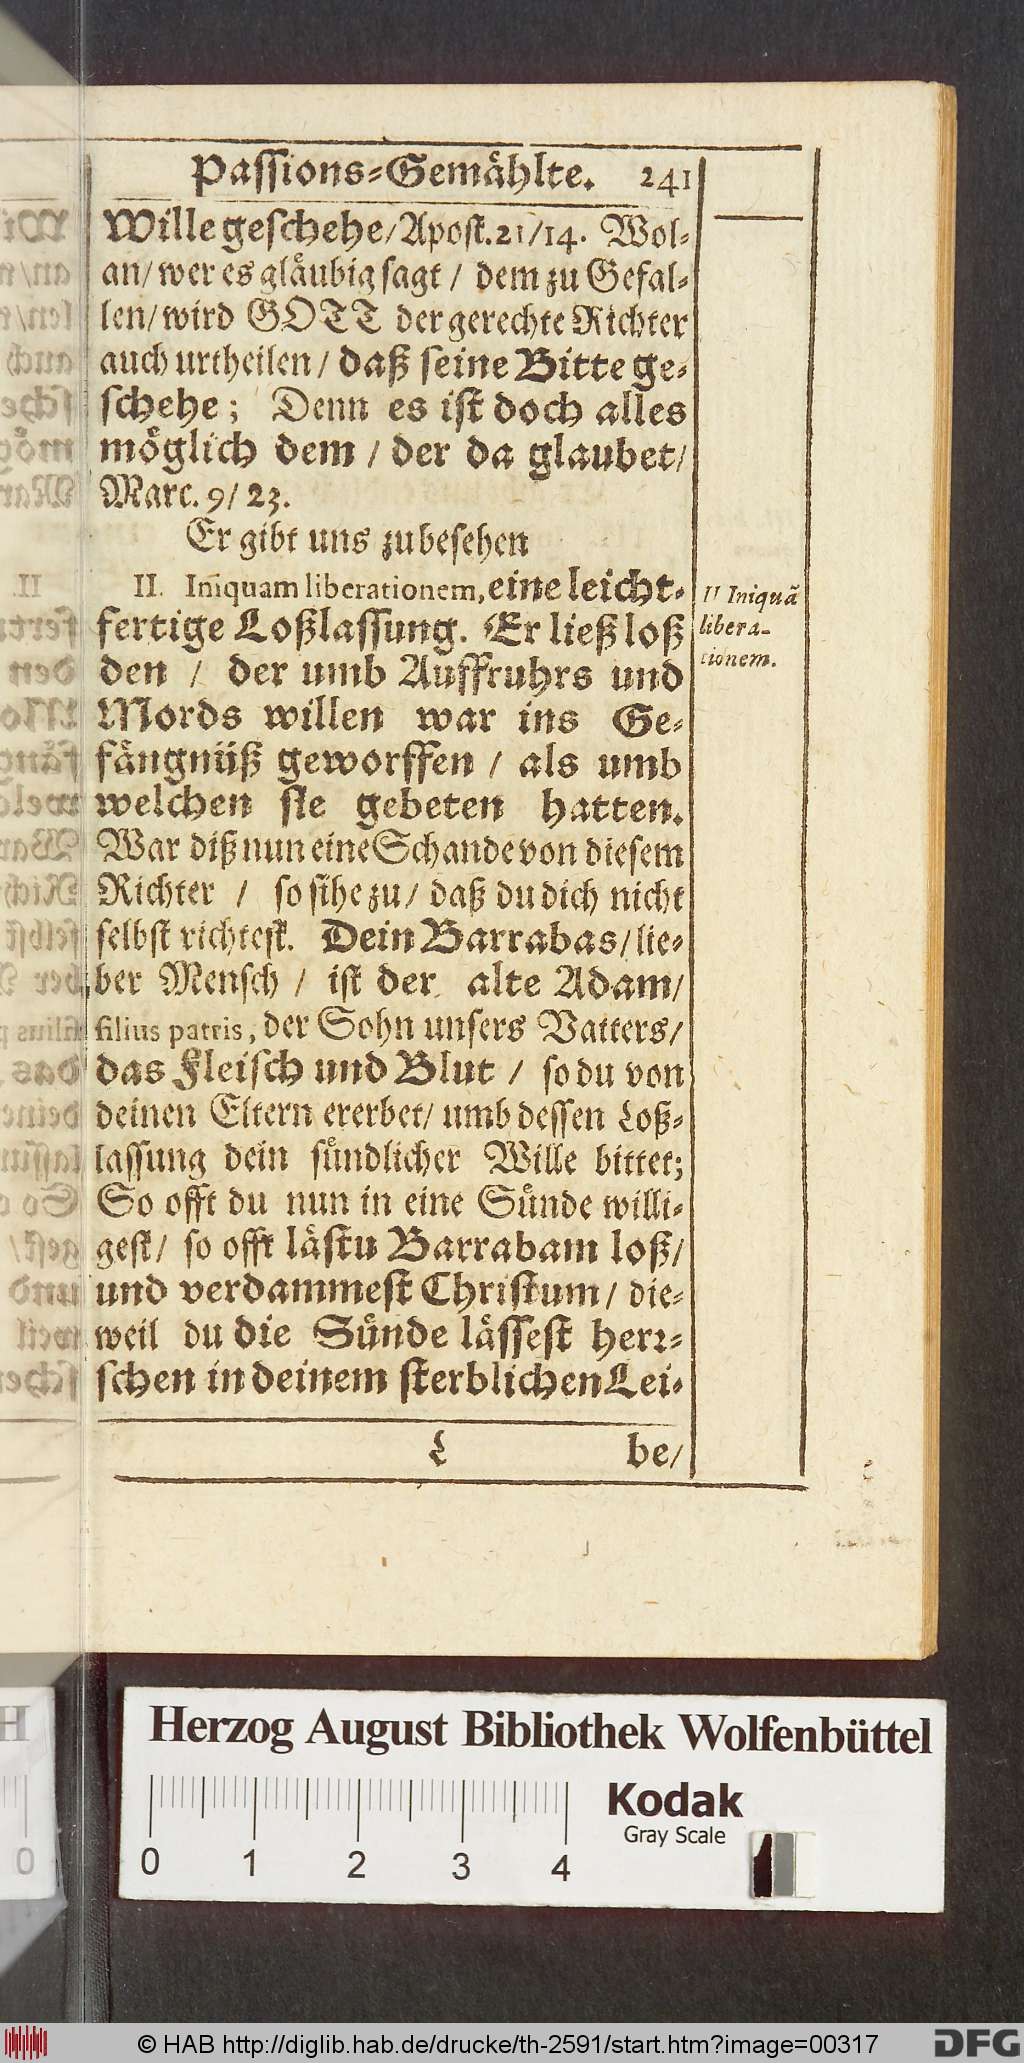 Passions-Gemählte. 241
Wille geschehe/ Apost. 21/14. Wol-
an/ wer es gläubig sagt / dem zu Gefal-
len/ wird GOTT der gerechte Richter
auch urtheilen / daß seine Bitte ge-
schehe; Denn es ist doch alles
möglich dem / der da glaubet/
Marc. 9/ 23.
Er gibt uns zubesehen
II. Iniquam liberationem, eine leicht-
fertige Loßlassung. Er ließ loß
den / der umb Auffruhrs und
Mords willen war ins Ge-
fängnüß geworffen / als umb
welchen sie gebeten hatten.
War diß nun eine Schande von diesem
Richter / so sihe zu/ daß du dich nicht
selbst richtest. Dein Barrabas/ lie-
ber Mensch / ist der alte Adam/
filius patris, der Sohn unsers Vatters/
das Fleisch und Blut / so du von
deinen Eltern ererbet/ umb dessen Loß-
lassung dein sündlicher Wille bittet;
So offt du nun in eine Sünde willi-
gest/ so offt lästu Barrabam loß/
und verdammest Christum/ die-
weil du die Sünde lässest herr-
schen in deinem sterblichen Lei-
L be/
II Iniquã
libera-
tionem.
Herzog August Bibliothek Wolfenbüttel
0 1 2 3 4
Kodak
Gray Scale
© HAB http://diglib.hab.de/drucke/th-2591/start.htm?image=00317
DFG